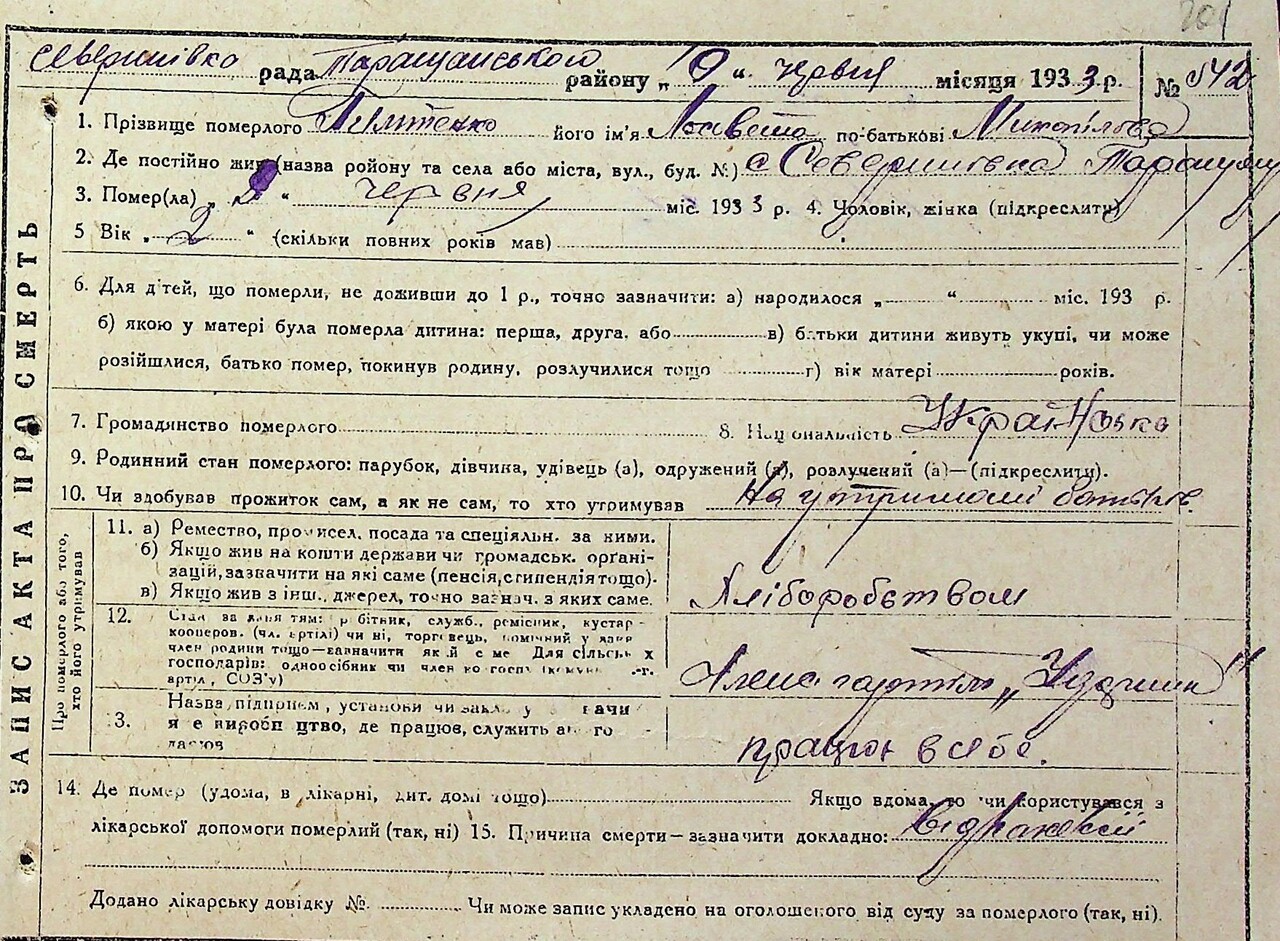 201
Северинівка рада Таращанського району „ 9 “ червня місяця 1933 р. № 42
1. Прізвище померлого його ім'я по-батькові
2. Де постійно жив (назва району та села або міста, вул., буд. №) с Северинівка
3. Помер(ла) „ 2 “ червня міс. 1933 р. 4. Чоловік, жінка (підкреслити)
5 Вік „ 2 “ (скільки повних років мав)
6. Для дітей, що померли, не доживши до 1 р., точно зазначити: а) народилося „ “ міс. 193 р.
б) якою у матері була померла дитина: перша, друга, або в) батьки дитини живуть укупі, чи може
розійшлися, батько помер, покинув родину, розлучилися тощо г) вік матері років.
7. Громадянство померлого 8. Національність Українська
9. Родинний стан померлого: парубок, дівчина, удівець (а), одружений (а), розлучений (а)—(підкреслити).
10. Чи здобував прожиток сам, а як не сам, то хто утримував На утриманні батьків
11. а) Ремество, промисел, посада та спеціяльн. за ними.
б) Якщо жив на кошти держави чи громадськ. орґані-
зацій, зазначити на які саме (пенсія, стипендія тощо).
в) Якщо жив з інш. джерел, точно зазнач. з яких саме.
Хліборобством
12. робітник, служб., ремісник, кустар-
кооперов. (чл. артілі) чи ні, торговець,
член родини тощо—зазначити Для сільськ х
господарів: одноосібник чи член
артіл, СОЗ'у)
Член
13. Назва установи чи
де працює, служить
працює в себе.
14. Де помер (удома, в лікарні, дит. домі тощо) Якщо вдома, то чи користувався з
лікарської допомоги померлий (так, ні) 15. Причина смерти—зазначити докладно:
Додано лікарську довідку № Чи може запис укладено на оголошеного від суду за померлого (так, ні).
ЗАПИС АКТА ПРО СМЕРТЬ
Про померлого або того,
хто його утримував